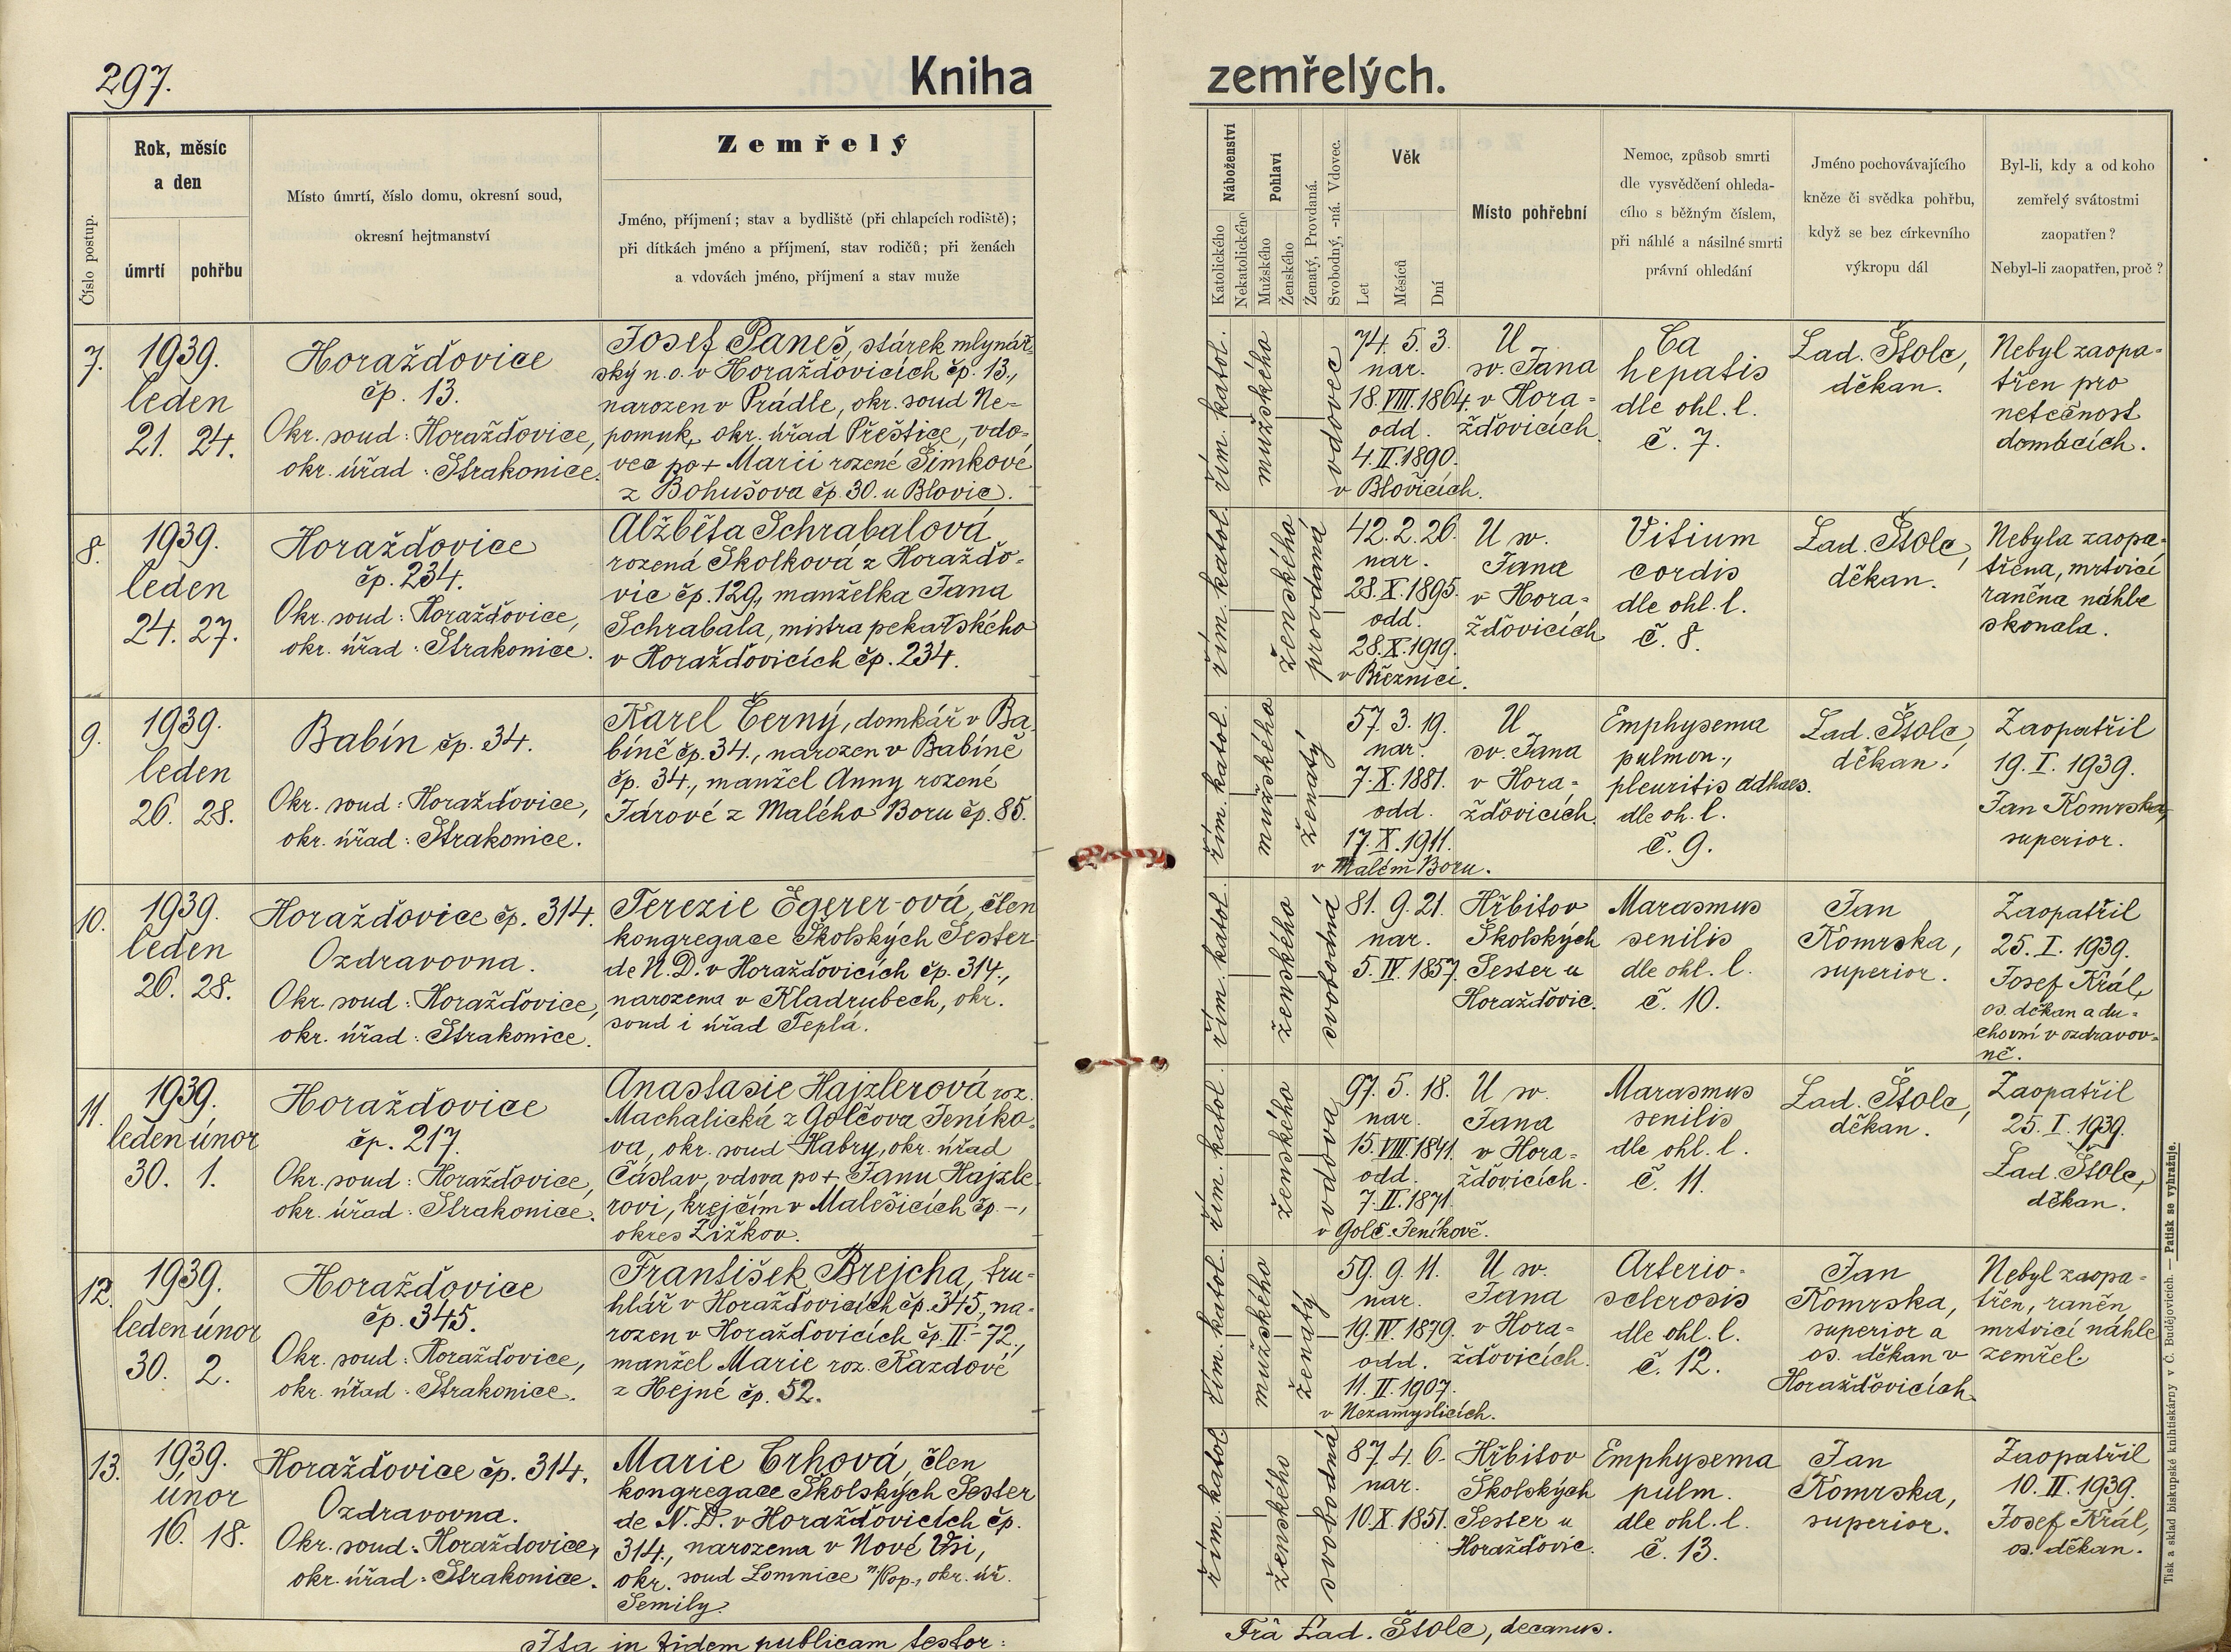 297.
Kniha
zemřelých.
Číslo postup.
Rok, měsíc
a den
úmrtí
pohřbu
Místo úmrtí, číslo domu, okresní soud,
okresní hejtmanství
Zemřelý
Jméno, příjmení; stav a bydliště (při chlapcích rodiště);
při dítkách jméno a příjmení, stav rodičů; při ženách
a vdovách jméno, příjmení a stav muže
Náboženství
Katolického
Nekatolického
Pohlaví
Mužského
Ženského
Ženatý, Provdaná.
Svobodný, -ná. Vdovec.
Věk
Let
Měsíců
Dní
Místo pohřební
Nemoc, způsob smrti
dle vysvědčení ohleda-
cího s běžným číslem,
při náhlé a násilné smrti
právní ohledání
Jméno pochovávajícího
kněze či svědka pohřbu,
když se bez církevního
výkropu dál
Byl-li, kdy a od koho
zemřelý svátostmi
zaopatřen?
Nebyl-li zaopatřen, proč?
7.
1939.
leden
21. 24.
Horažďovice
čp. 13.
Okr. soud: Horažďovice,
okr. úřad: Strakonice.
Josef Paneš, stárek mlynář-
ský n. o. v Horažďovicích čp. 13.,
narozen v Prádle, okr. soud Ne-
pomuk, okr. úřad Přeštice, vdo-
vec po + Marii rozené Šimkové
z Bohušova čp. 30. u Blovic.
řím. katol.
mužského
vdovec
74. 5. 3.
nar.
18. VIII. 1864.
odd.
4. II. 1890.
v Blovicích.
U
sv. Jana
v Hora-
žďovicích.
Ca
hepatis
dle ohl. l.
č. 7.
Lad. Štolc,
děkan.
Nebyl zaopa-
třen pro
netečnost
domácích.
8.
1939.
leden
24. 27.
Horažďovice
čp. 234.
Okr. soud: Horažďovice,
okr. úřad: Strakonice.
Alžběta Schrabalová
rozená Skolková z Horažďo-
vic čp. 129., manželka Jana
Schrabala, mistra pekařského
v Horažďovicích čp. 234.
řím. katol.
ženského
provdaná
42. 2. 26.
nar.
28. X. 1895.
odd.
28. X. 1919.
v Březnici.
U sv.
Jana
v Hora-
žďovicích
Vitium
cordis
dle ohl. l.
č. 8.
Lad. Štolc,
děkan.
Nebyla zaopa-
třena, mrtvicí
raněna náhle
skonala.
9.
1939.
leden
26. 28.
Babín čp. 34.
Okr. soud: Horažďovice,
okr. úřad: Strakonice.
Karel Černý, domkář v Ba-
bíně čp. 34., narozen v Babíně
čp. 34., manžel Anny rozené
Járové z Malého Boru čp. 85.
řím. katol.
mužského
ženatý
57. 3. 19.
nar.
7. X. 1881.
odd.
17. X. 1911.
v Malém Boru.
U
sv. Jana
v Hora-
žďovicích.
Emphysema
pulmon.,
pleuritis adhaes.
dle oh. l.
č. 9.
Lad. Štolc,
děkan.
Zaopatřil
19. I. 1939.
Jan Komrska,
superior.
10.
1939.
leden
26. 28.
Horažďovice čp. 314.
Ozdravovna.
Okr. soud: Horažďovice,
okr. úřad: Strakonice.
Terezie Egerer-ová, člen
kongregace Školských Sester
de N. D. v Horažďovicích čp. 314.,
narozena v Kladrubech, okr.
soud i úřad Teplá.
řím. katol.
ženského
svobodná
81. 9. 21.
nar.
5. IV. 1857.
Hřbitov
Školských
Sester u
Horažďovic.
Marasmus
senilis
dle ohl. l.
č. 10.
Jan
Komrska,
superior.
Zaopatřil
25. I. 1939.
Josef Král,
os. děkan a du-
chovní v ozdravov-
ně.
11.
1939.
leden únor
30. 1.
Horažďovice
čp. 217.
Okr. soud: Horažďovice,
okr. úřad: Strakonice.
Anastasie Hajzlerová roz.
Machalická z Golčova Jeníko-
va, okr. soud Habry, okr. úřad
Čáslav, vdova po + Janu Hajzle-
rovi, krejčím v Malešicích čp. -,
okres Žižkov.
řím. katol.
ženského
vdova
97. 5. 18.
nar.
15. VIII. 1841.
odd.
7. II. 1871.
v Golč. Jeníkově.
U sv.
Jana
v Hora-
žďovicích.
Marasmus
senilis
dle ohl. l.
č. 11.
Lad. Štolc,
děkan.
Zaopatřil
25. I. 1939.
Lad. Štolc,
děkan.
12.
1939.
leden únor
30. 2.
Horažďovice
čp. 345.
Okr. soud: Horažďovice,
okr. úřad: Strakonice.
František Brejcha, tru-
hlář v Horažďovicích čp. 345., na-
rozen v Horažďovicích čp. II-72.,
manžel Marie roz. Kazdové
z Hejné čp. 52.
řím. katol.
mužského
ženatý
59. 9. 11.
nar.
19. IV. 1879.
odd.
11. II. 1907.
v Nezamyslicích.
U sv.
Jana
v Hora-
žďovicích.
Arterio-
sclerosis
dle ohl. l.
č. 12.
Jan
Komrska,
superior a
os. děkan v
Horažďovicích.
Nebyl zaopa-
třen, raněn
mrtvicí náhle
zemřel.
13.
1939.
únor
16. 18.
Horažďovice čp. 314.
Ozdravovna.
Okr. soud: Horažďovice,
okr. úřad: Strakonice.
Marie Crhová, člen
kongregace Školských Sester
de N. D. v Horažďovicích čp.
314., narozena v Nové Vsi,
okr. soud Lomnice n/Pop., okr. úř.
Semily.
řím. katol.
ženského
svobodná
87. 4. 6.
nar.
10. X. 1851.
Hřbitov
Školských
Sester u
Horažďovic.
Emphysema
pulm.
dle ohl. l.
č. 13.
Jan
Komrska,
superior.
Zaopatřil
10. II. 1939.
Josef Král,
os. děkan.
Ita in fidem publicam testor:
Frā Lad. Štolc, decanus.
Tisk a sklad biskupské knihtiskárny v Č. Budějovicích. — Patisk se vyhražuje.